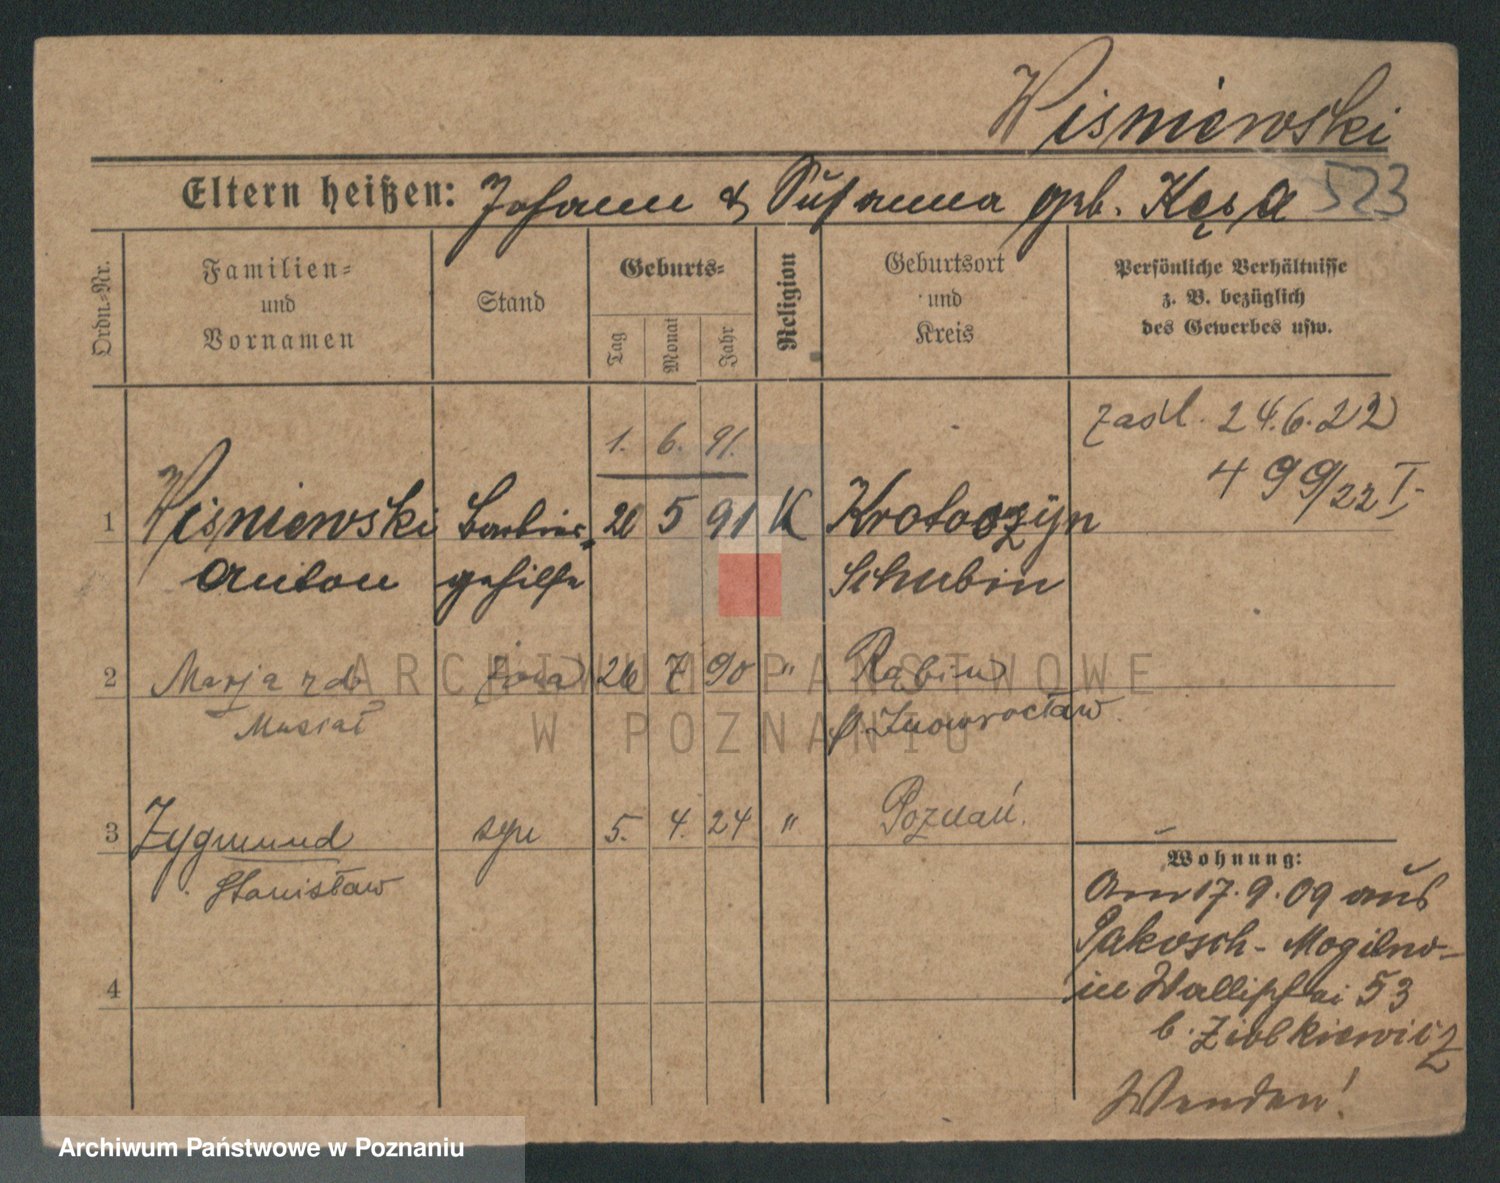 Wisniewski
Eltern heißen: Johann & Susanna geb. Kęsa 523
Ordn.-Nr.
Familien-
und
Vornamen
Stand
Geburts-
Tag
Monat
Jahr
Religion
Geburtsort
und
Kreis
Persönliche Verhältnisse
z. B. bezüglich
des Gewerbes usw.
zaśl. 24.6.22
499/22 I.
1. 6. 91.
1 Wisniewski Barbier- 20 5 91 K Krotoczyn
Anton gehilfe Schubin
2 Marja z d. żona 26 7 90 " Rąbin
Musiał p. Inowrocław
3 Zygmund syn 5. 4. 24 " Poznań.
Stanisław
4
Wohnung:
Am 17.9.09 aus
Pakosch-Mogilno-
in Wallischei 53
b. Ziolkiewicz
Wenden!
ARCHIWUM PAŃSTWOWE
W POZNANIU
Archiwum Państwowe w Poznaniu